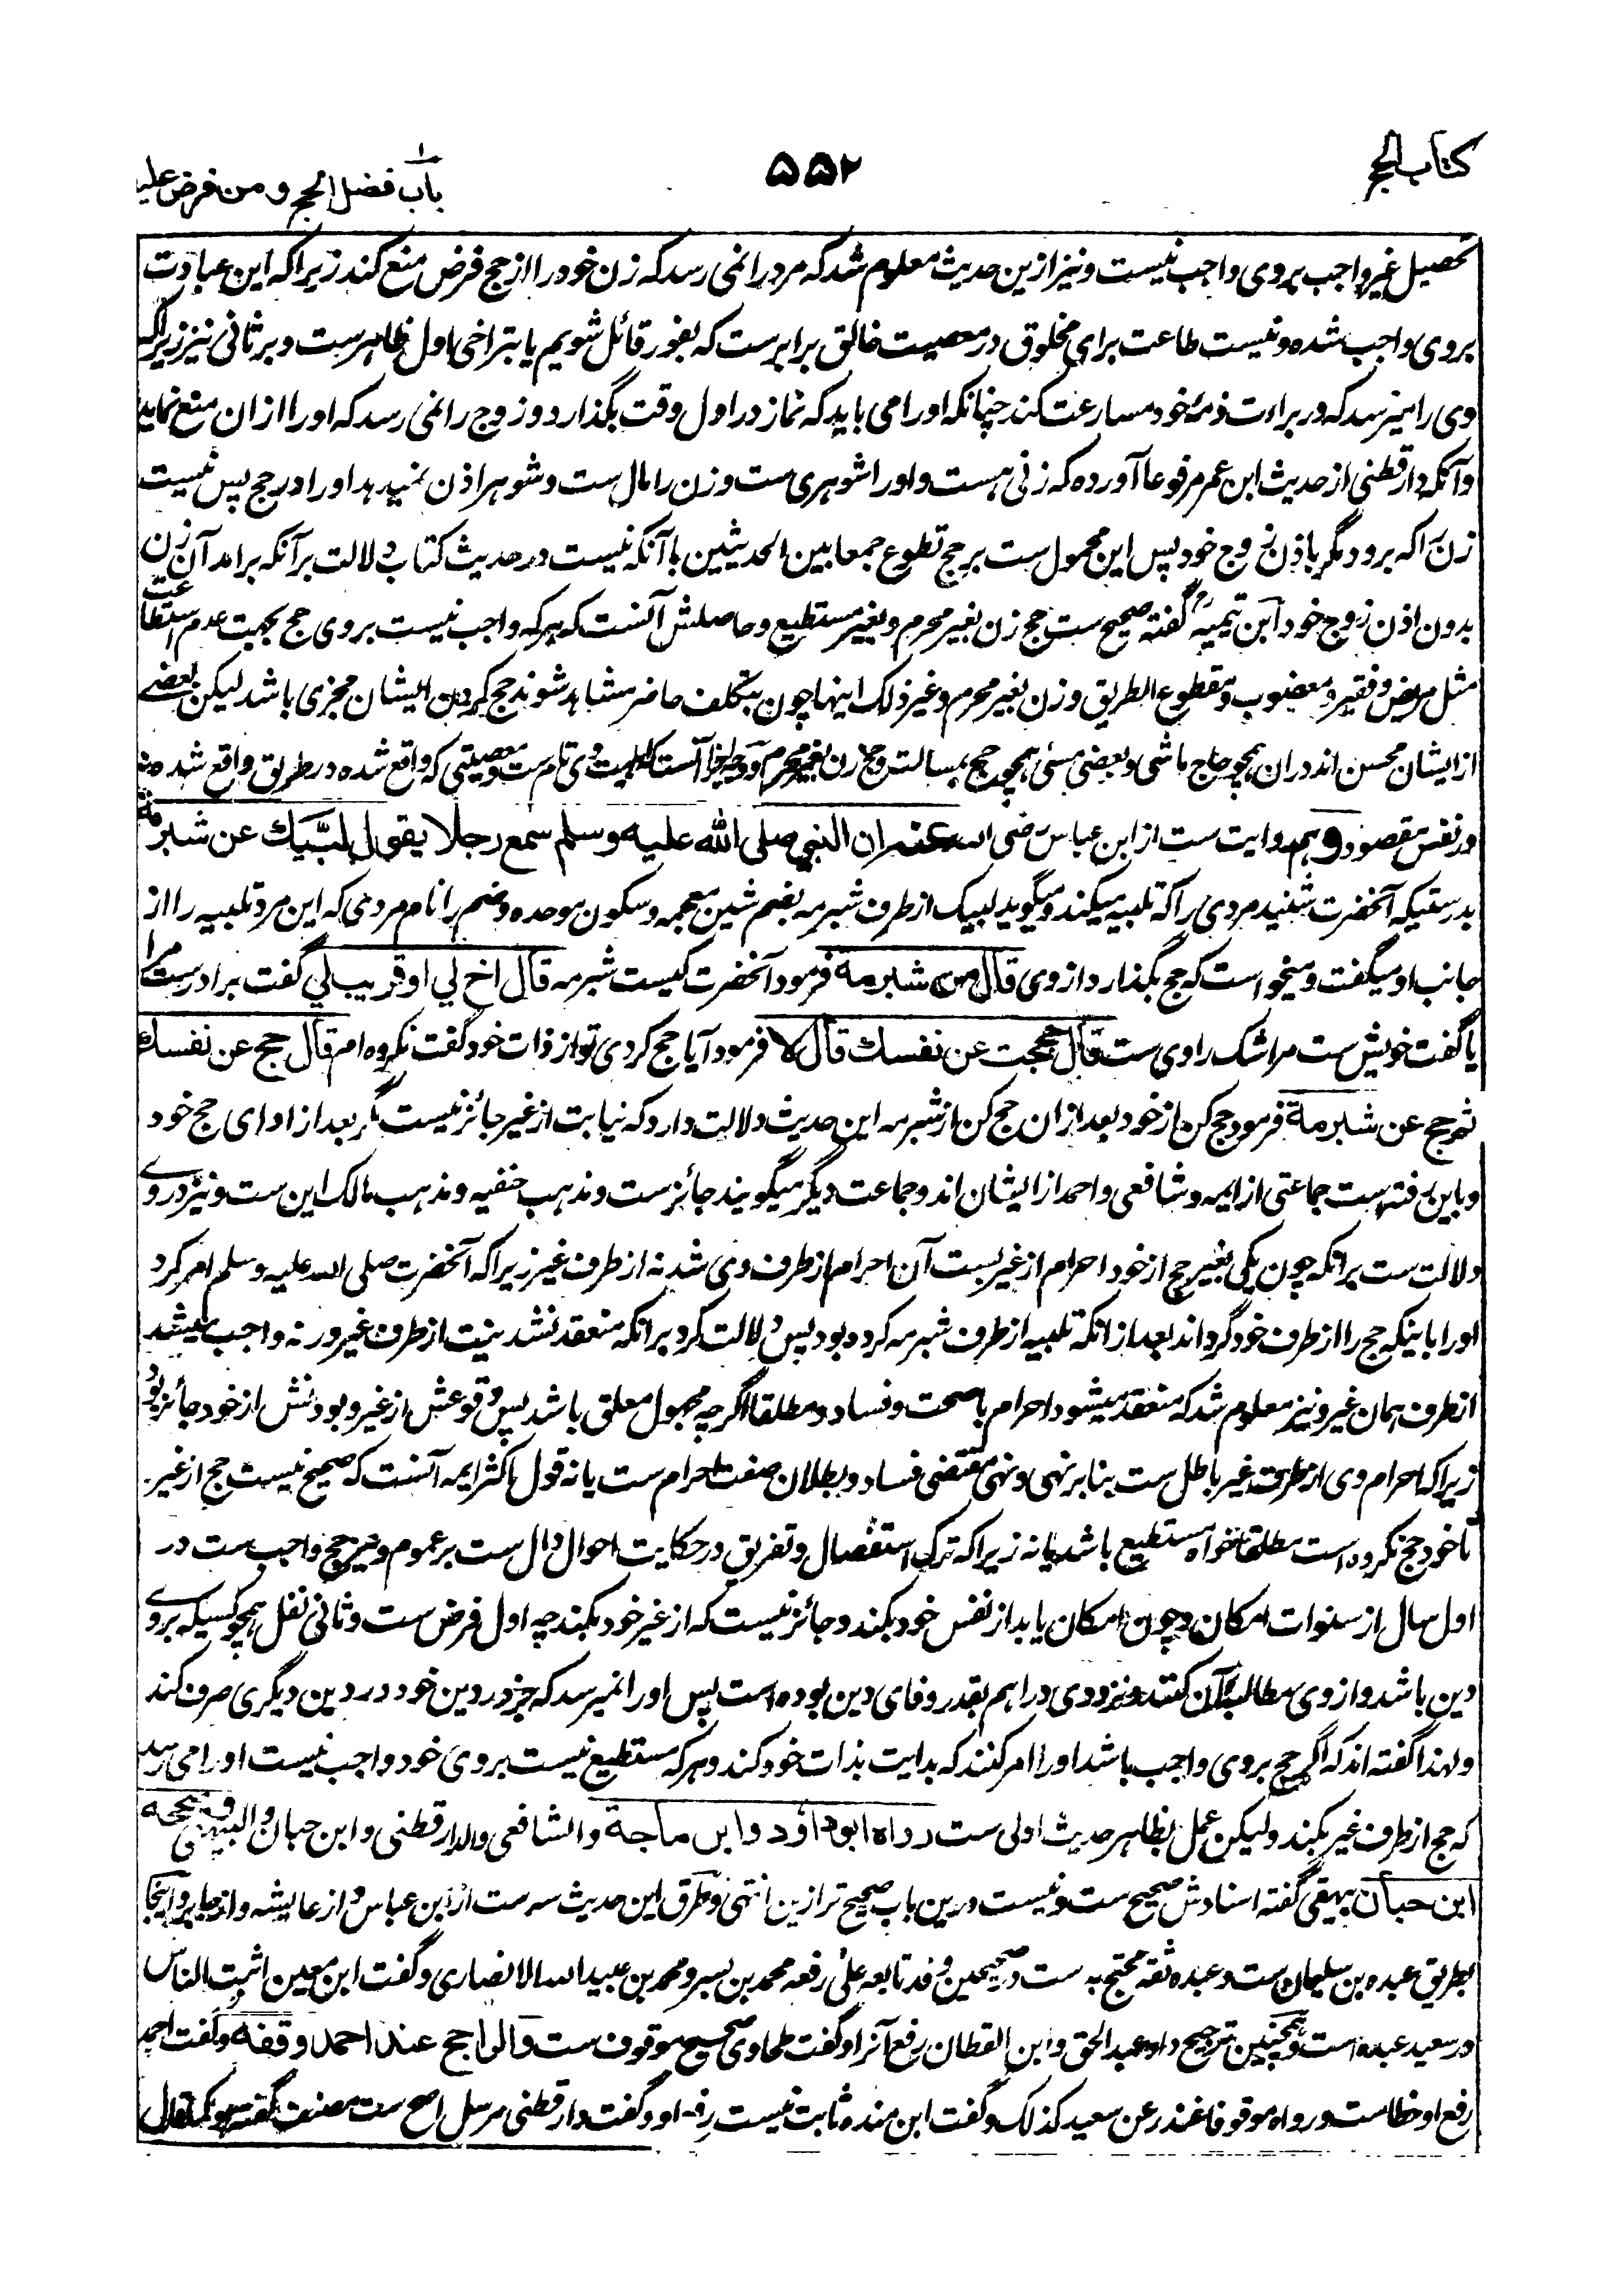 کتاب الحج
۵۵۲
باب فضل الحج و من فرض علیه
تحصیل غیر واجب بروی واجب نیست و نیز ازین حدیث معلوم شد که مرد را نمی رسد که زن خود را از حج فرض منع کند زیرا که این عبادت
بروی واجب شده و نیست طاعت برای مخلوق در معصیت خالق برابرست که بفور قائل شویم یا بتراخی اول ظاهرست و بر ثانی نیز زیراکه
وی را میرسد که در براءت ذمهٔ خود مسارعت کند چنانکه او را می باید که نماز در اول وقت بگذارد و زوج را نمی رسد که او را ازان منع نماید
و آنکه دارقطنی از حدیث ابن عمر مرفوعا آورده که زنی هست و او را شوهری ست و زن را مال ست و شوهر اذن نمیدهد او را در حج پس نیست
زن را که برود مگر باذن زوج خود پس این محمول ست بر حج تطوع جمعا بین الحدیثین با آنکه نیست در حدیث کتاب دلالت بر آنکه برامد آن زن
بدون اذن زوج خود ابن تیمیه گفته صحیح ست حج زن بغیر محرم و بغیر مستطیع و حاصلش آنست که هر که واجب نیست بروی حج بجهت عدم استطاعت
مثل مریض و فقیر و معضوب و مقطوع الطریق و زن بغیر محرم و غیر ذلک اینها چون بتکلف حاضر مشاهد شوند حج کردن ایشان مجزی باشد لیکن بعضے
از ایشان محسن اند دران همچو حاج ماشی و بعضی مسئی همچو حج بمسالت و حج زن بغیر محرم و وجه اجزا آنست که اهلیت وی تام ست و معصیتی که واقع شده در طریق واقع شده نه
در نفس مقصود و هم روایت ست از ابن عباس رضی الله عنه ان النبی صلی الله علیه وسلم سمع رجلا یقول لبیك عن شبرمة
بدرستیکه آنحضرت شنید مردی را که تلبیه میکند و میگوید لبیک از طرف شبرمه بضم شین معجمه و سکون موحده و ضم را نام مردی که این مرد تلبیه را از
جانب او میگفت و میخواست که حج بگذارد از وی قال من شبرمة فرمود آنحضرت کیست شبرمه قال اخ لي او قریب لي گفت برادرست مرا
یا گفت خویش ست مرا شک راوی ست قال حججت عن نفسك قال لا فرمود آیا حج کردی تو از ذات خود گفت نکرده ام قال حج عن نفسك
ثم حج عن شبرمة فرمود حج کن از خود بعد ازان حج کن از شبرمه این حدیث دلالت دارد که نیابت از غیر جائز نیست مگر بعد از ادای حج خود
و باین رفته است جماعتی از ایمه و شافعی و احمد از ایشان اند و جماعت دیگر میگویند جائزست و مذهب حنفیه و مذهب مالک این ست و نیز دروے
دلالت ست برانکه چون یکی بغیر حج از خود احرام از غیر بست آن احرام از طرف وی شد نه از طرف غیر زیرا که آنحضرت صلی الله علیه وسلم امر کرد
او را باینکه حج را از طرف خود گرداند بعد ازانکه تلبیه از طرف شبرمه کرده بود پس دلالت کرد برانکه منعقد نشد نیت از طرف غیر ور نه واجب میشد
از طرف همان غیر و نیز معلوم شد که منعقد میشود احرام با صحت و فساد و مطلقا اگر چه مجهول معلق باشد پس وقوعش از غیر و بودنش از خود جائز بود
زیرا که احرام وی از طرف غیر باطل ست بنا بر نهی و نهی مقتضی فساد و بطلان صفت احرام ست یا نه قول اکثر ایمه آنست که صحیح نیست حج از غیر
تا خود حج نکرده است مطلقا خواه مستطیع باشد یا نه زیرا که ترک استفصال و تفریق در حکایت احوال دال ست بر عموم و نیز حج واجب ست در
اول سال از سنوات امکان و چون امکان یابد از نفس خود بکند و جائز نیست که از غیر خود بکند چه اول فرض ست و ثانی نفل همچو کسیکه بروے
دین باشد و از وی مطالبه آن کنند و نزد وی دراهم بقدر وفای دین بوده است پس او را نمیرسد که جز در دین خود در دین دیگری صرف کند
و لهذا گفته اند که اگر حج بروی واجب باشد او را امر کنند که بدایت بذات خود کند و هر که مستطیع نیست بروی خود واجب نیست او را می رسد
که حج از طرف غیر بکند ولیکن عمل بظاهر حدیث اولی ست رواه ابوداود وابن ماجة والشافعی والدارقطنی وابن حبان والبیهقی وصححه
ابن حبان بیهقی گفته اسنادش صحیح ست و نیست درین باب صحیح تر ازین انتهی و طرق این حدیث سه ست از ابن عباس و از عایشه و از جابر و اینجا
بطریق عبده بن سلیمان ست و عبده ثقه محتج به ست در صحیحین و قد تابعه علی رفعه محمد بن بسر و محمد بن عبید الله الانصاری و گفت ابن معین اثبت الناس
در سعید عبده است و همچنین ترجیح داده عبد الحق و ابن القطان رفع آنرا و گفت طحاوی صحیح موقوف ست والراجح عند احمد وقفه و گفت احمد
رفع او خطاست و رواه موقوفا غندر عن سعید کذلک و گفت ابن منده ثابت نیست رفع او و گفت دارقطنی مرسل اصح ست مصنف گفته